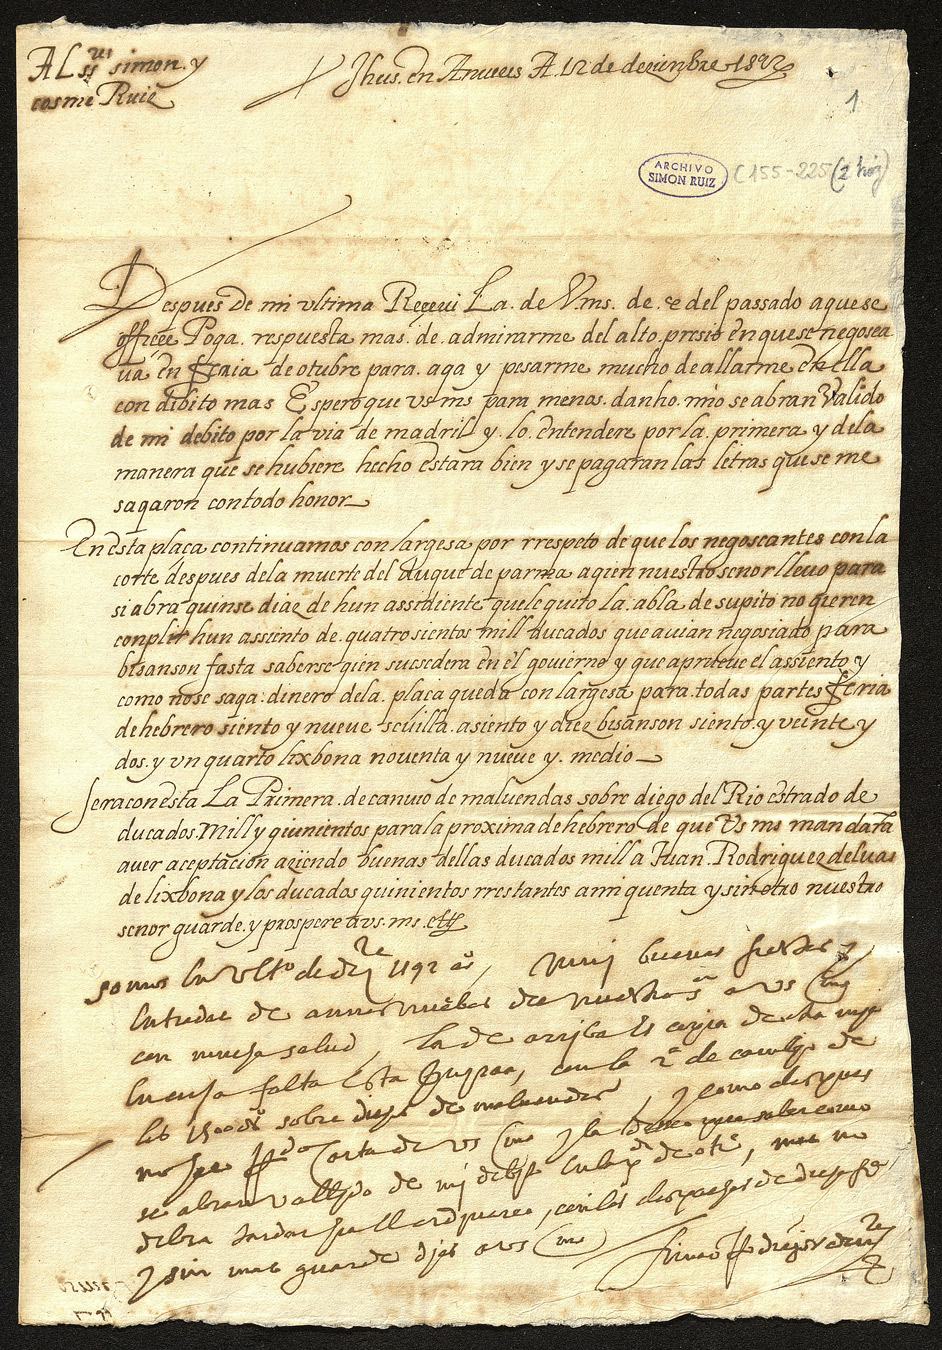 A Los sres simon y
cosme Ruiz
Jhus. en Anveres A 12 de dezienbre 1592
1
ARCHIVO
SIMON RUIZ
C 155-225 (2 hoj)
Despues de mi ultima Reçevi La. de Vms. de. del passado aque se
offreçe Poqa. respuesta mas. de. admirarme del alto. presio en que se negosea
va en feria de otubre para. aqa y pesarme mucho de allarme en ella
con dibito mas Espero que vs ms para menos. danho. mio se abran valido
de mi debito por la via de madril y. lo. entendere por la. primera y de la
manera que se hubiere hecho estara bien y se pagaran las letras que se me
saqaron con todo honor
En esta plaça continuamos con largesa por rrespeto de que los negoscantes con la
corte despues de la muerte del duque de parma a qien nuestro señor llevo para
si abra quinse diaz de hun assidiente que le quito la. abla. de supito no qieren
conplir hun assiento de. quatrosientos mill ducados que avian negosiado para
bisanson fasta saberse qien sucsedera en el govierno y que aprueve el assiento y
como no se saqa. dinero de la. plaça queda con largesa para. todas partes feria
de hebrero siento y nueve sevilla. asiento y diez bisanson siento. y veinte y
dos. y un quarto lixbona noventa y nueve y. medio
sera con esta La Primera. de canvio de maluendas sobre diego del Rio estrado de
ducados. Mill y qiunientos para la proxima de hebrero de que Vs ms mandara
aver aceptacion aziendo buenas dellas ducados mill a Juan. Rodriguez de
de lixbona y los ducados quinientos rrestantes a mi quenta y sin otro nuestro
senor guarde. y prospere a vs. ms. etc
somos en ult.o de dez.re 1592 as, Muy buenas fiestas y
entradas de annos nuebos de nuestro s.or a vs ms
con mucha salud, La de arriba es copia de
falta esta, con la 2a de cambio de
los 1500 ds sobre diego de maluenda, y como despues
no carta de vs ms y la deseo para saber como
se abran vallido de mi debito en la de ot.e, que no
debra tardar, con los despachos de
y sin mas guarde dios a vs ms